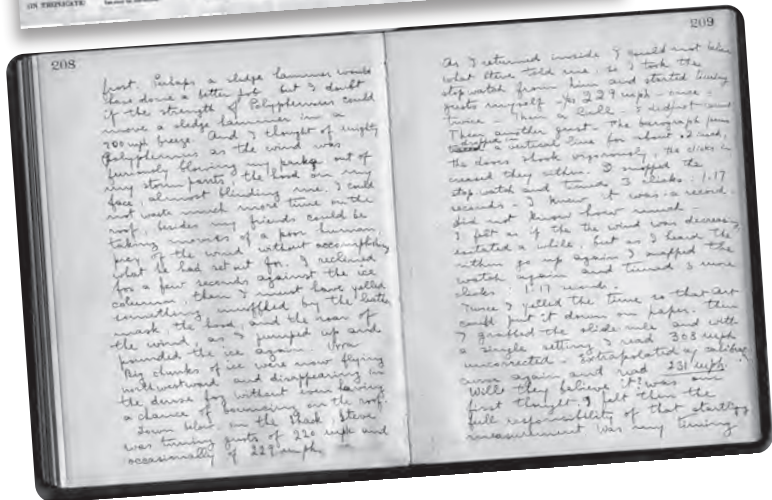 (IN TRIPLICATE)
208
frost. Perhaps a sledge hammer would
have done a better job but I doubt
if the strength of Polyphemus could
move a sledge hammer in a
200 mph breeze. And I thought of mighty
Polyphemus as the wind was
furiously blowing my parka out of
my storm pants, the hood on my
face, almost blinding me. I could
not waste much more time on the
roof, besides my friends could be
taking movies of a poor human
prey of the wind without accomplishing
what he had set out for. I reclined
for a few seconds against the ice
column then I must have yelled
something muffled by the
mask, the hood, and the roar of
the wind, as I jumped up and
pounded the ice again.
Big chunks of ice were now flying
northwestward and disappearing in
the dense fog without even having
a chance of bouncing on the roof.
Down below in the shack, Steve
was timing gusts of 220 mph and
occasionally of 229 mph.
209
As I returned inside I could not believe
what Steve told me, so I took the
stop watch from him and started timing
gusts myself 229 mph - once -
twice - Then a lull. I
Then another gust - The barograph pen
dropped a vertical line for about .2 inch,
the doors shook vigorously, the clicks in
creased they I snapped the
stop watch and timed 3 clicks: 1.17
seconds - I knew it was a record.
did not know how much -
I felt as if the wind was decreasing,
hesitated a while, but as I heard the
go up again I snapped the
watch again and timed 3 more
clicks 1.17 seconds -
Twice I yelled the time so that Art
could put it down on paper. Then
I grabbed the slide rule and with
a single setting I read 308 mph
uncorrected - Extrapolated
curve again and read 231 mph.
Will they believe it? was our
first thought. I felt then the
full responsibility of that startling
measurement was my timing